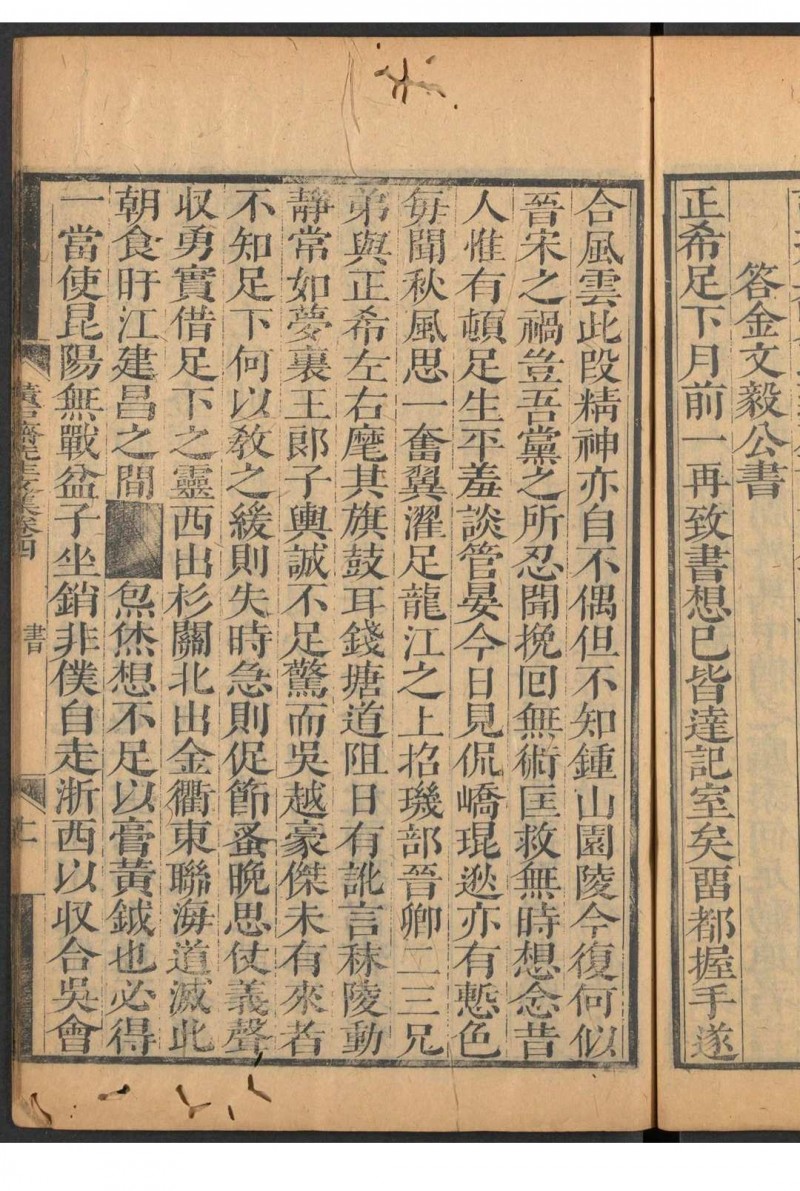 答金文毅公書
正希足下月前一再致書想已皆達記室矣畱都握手遂
合風雲此段精神亦自不偶但不知鍾山園陵今復何似
晉宋之禍豈吾黨之所忍聞挽囘無術匡救無時想念昔
人惟有頓足生平羞談管晏今日見侃嶠琨逖亦有慙色
每聞秋風思一奮翼濯足龍江之上招璣部晉卿二三兄
弟與正希左右麾其旗鼓耳錢塘道阻日有訛言秣陵動
靜常如夢裏王郞子輿誠不足驚而吳越豪傑未有來者
不知足下何以敎之緩則失時急則促節蚤晚思仗義聲
収勇實借足下之靈西出杉關北出金衢東聯海道滅此
朝食盱江建昌之間 炰烋想不足以膏黃鉞也必得
一當使昆陽無戰盆子坐銷非僕自走浙西以収合吳會
黃石齋先生文集卷四 書